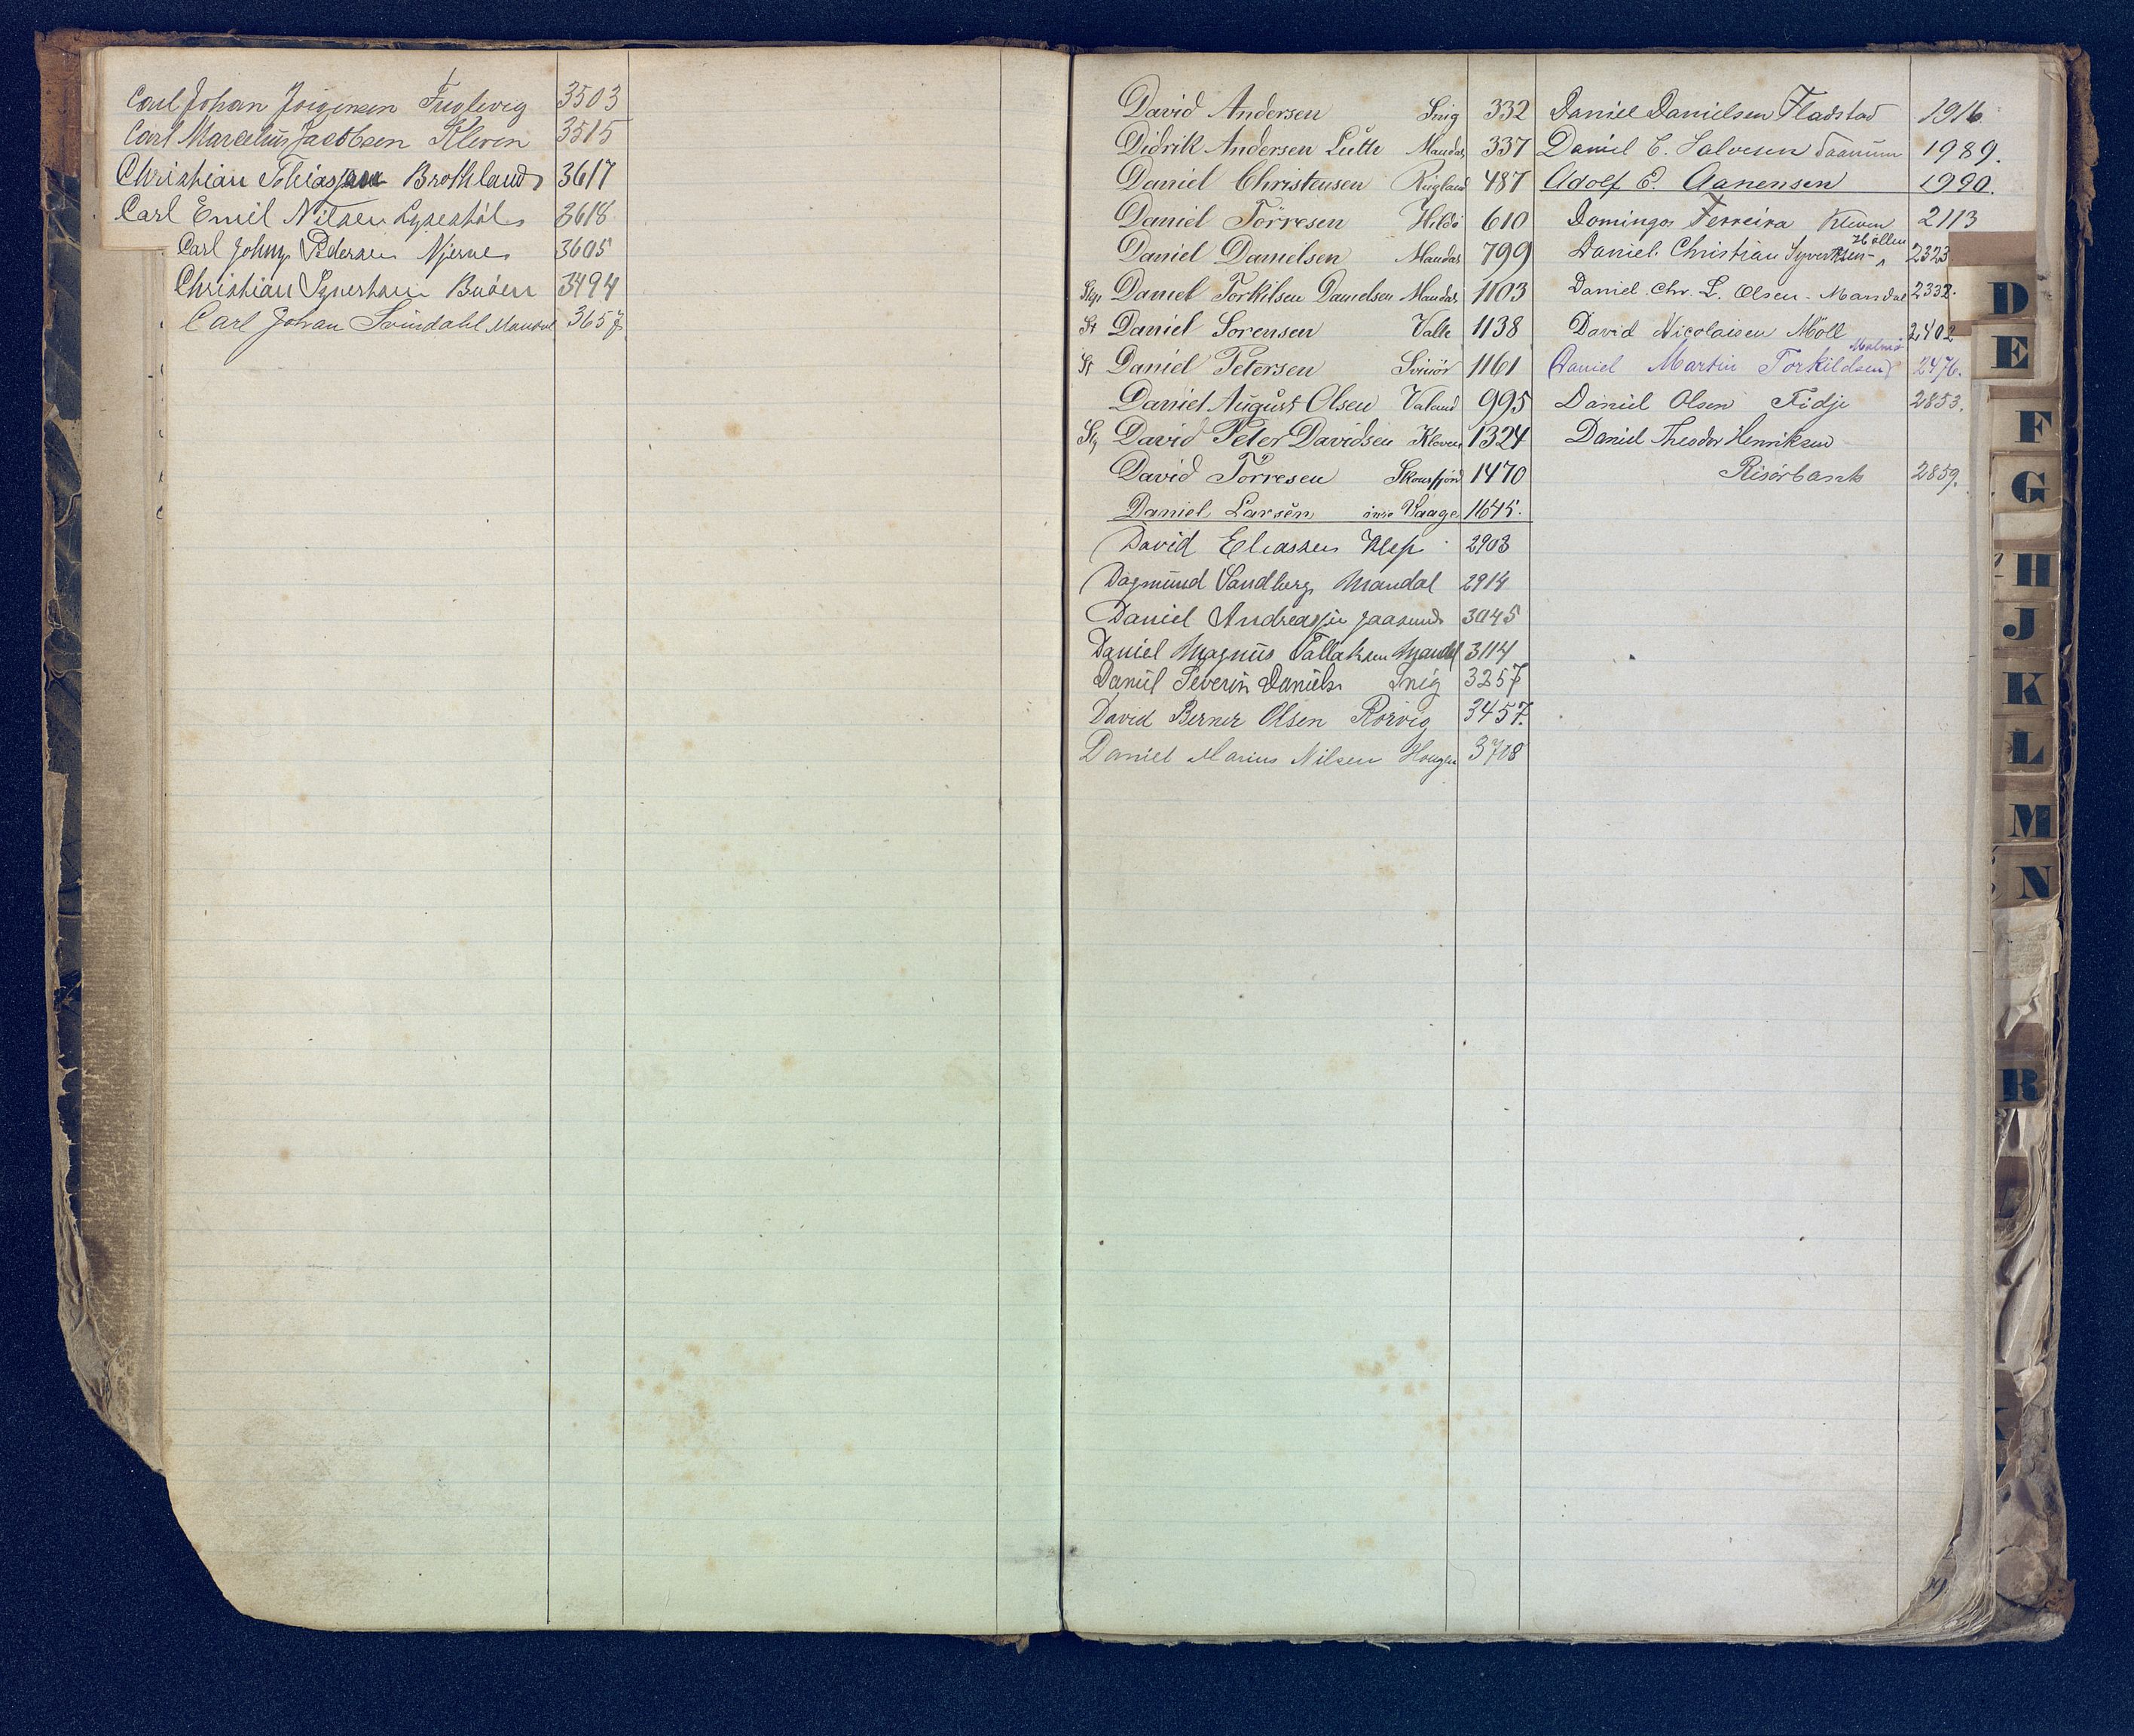 Carl Johan Jörgensen Fuglevig 3503
Carl Marcelius Jacobsen Kleven 3515
Christian Tobiasen Brothland 3617
Carl Emil Nilsen 3618
Carl Johny Pedersen Njerve 3605
Christian Syvertsen Buöen 3494
Carl Johan Svindahl Mandal 3657
David Andersen Snig 332
Didrik Andersen Lütte Mandal 337
Daniel Christensen Rügland 487
Daniel Törresen Hildö 610
Daniel Danielsen Mandal 799
Daniel Torkilsen Danielsen Mandal 1103
St Daniel Sorensen Valle 1138
St Daniel Petersen Svinör 1161
Daniel August Olsen Valand 995
David Peter Davidsen Kleven 1324
David Törresen Skonsfjord 1470
Daniel Larsen Vaage 1645.
David Eliassen Klep 2908
Dagmund Sandberg Mandal 2914
Daniel Andreassen Jaasund 3045
Daniel Magnus Tallaksen Mandal 3114
Daniel Severin Daniels. Snig 3257
David Berner Olsen Rorvig 3457.
Daniel Marius Nilsen Hougen 3708
Daniel Danielsen Fladstad 1916
Daniel E. Salvesen Faanum 1989.
Adolf E. Aanensen 1990.
Domingos Ferreira Kleven 2113
Daniel Christian Syvertsen Höllen 2323
Daniel Chr. L. Olsen. Mandal 2332.
David Nicolaisen Möll 2402
Daniel Martin Torkildsen Malmö 2476.
Daniel Olsen Fidje 2853.
Daniel Theodor Henriksen
Risörbank 2859.
D
E
F
G
H
J
K
L
M
N
R